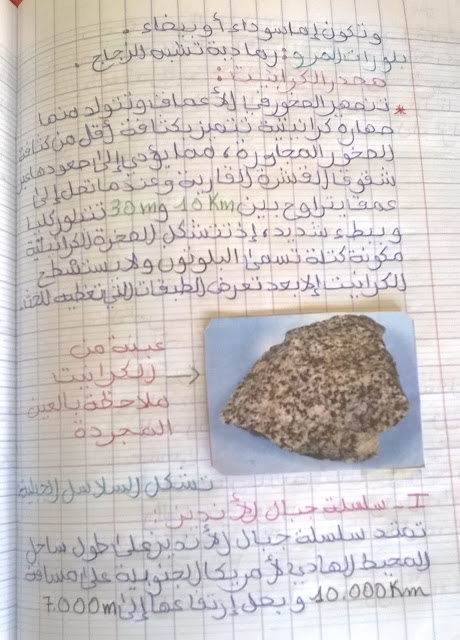 وتكون إما سوداء أو بيضاء .
بلورات المرو : رمادية تشبه الزجاج .
مصدر الكرانيت :
* تنصهر الصخور في الأعماق وتتولد منها
صهارة كرانيتية تتميز بكثافة أقل من كثافة
الصخور المجاورة ، مما يؤدي إلى صعودها عبر
شقوق القشرة القارية وعندما تصل إلى
عمق يتراوح بين 10 Km و 30 m تتبلور كليا
و ببطء شديد ، إذ تتشكل الصخرة الكرانيتية
مكونة كتلة تسمى البلوتون ولا يستسطح
الكرانيت إلا بعد تعرض الطبقات التي تغطيه للحت
عينة من
الكرانيت
ملاحظة بالعين
المجردة
تشكل السلاسل الجبلية
I - سلسلة جبال الأنديز :
تمتد سلسلة جبال الأنديز على طول ساحل
المحيط الهادي لأمريكا الجنوبية على مسافة
10.000 Km و يصل إرتفاعها إلى 7000m